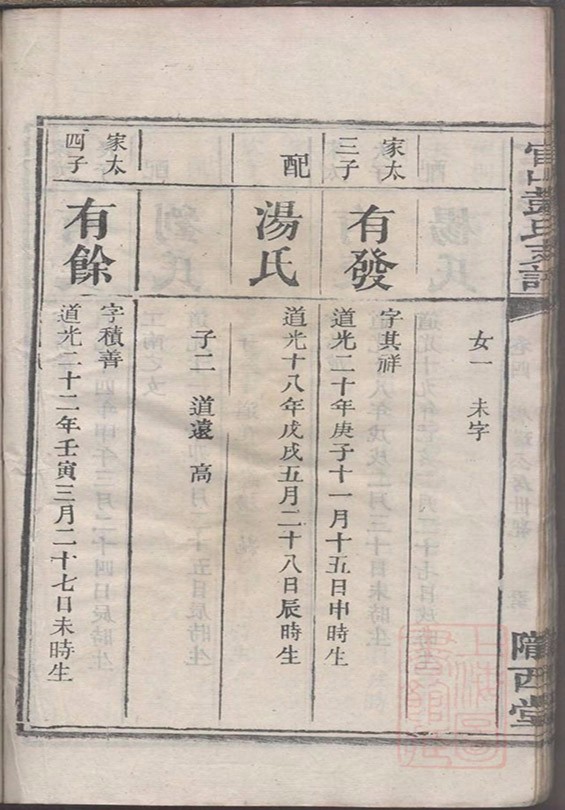 女一 未字
家太三子
有發
字其祥
道光二十年庚子十一月十五日申時生
配
湯氏
道光十八年戊戌五月二十八日辰時生
子二 道遠 高
家太四子
有餘
字積善
道光二十二年壬寅三月二十七日未時生
隴西堂